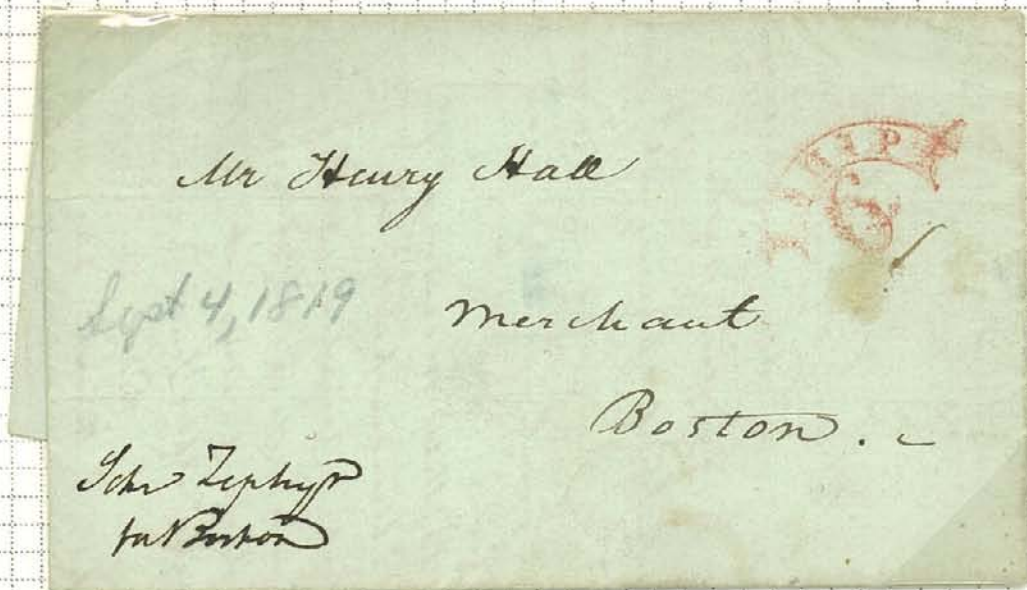 Mr Henry Hall
SHIP
6
Sept 4, 1819
Merchant
Boston.
Schr Zephyr
for Boston